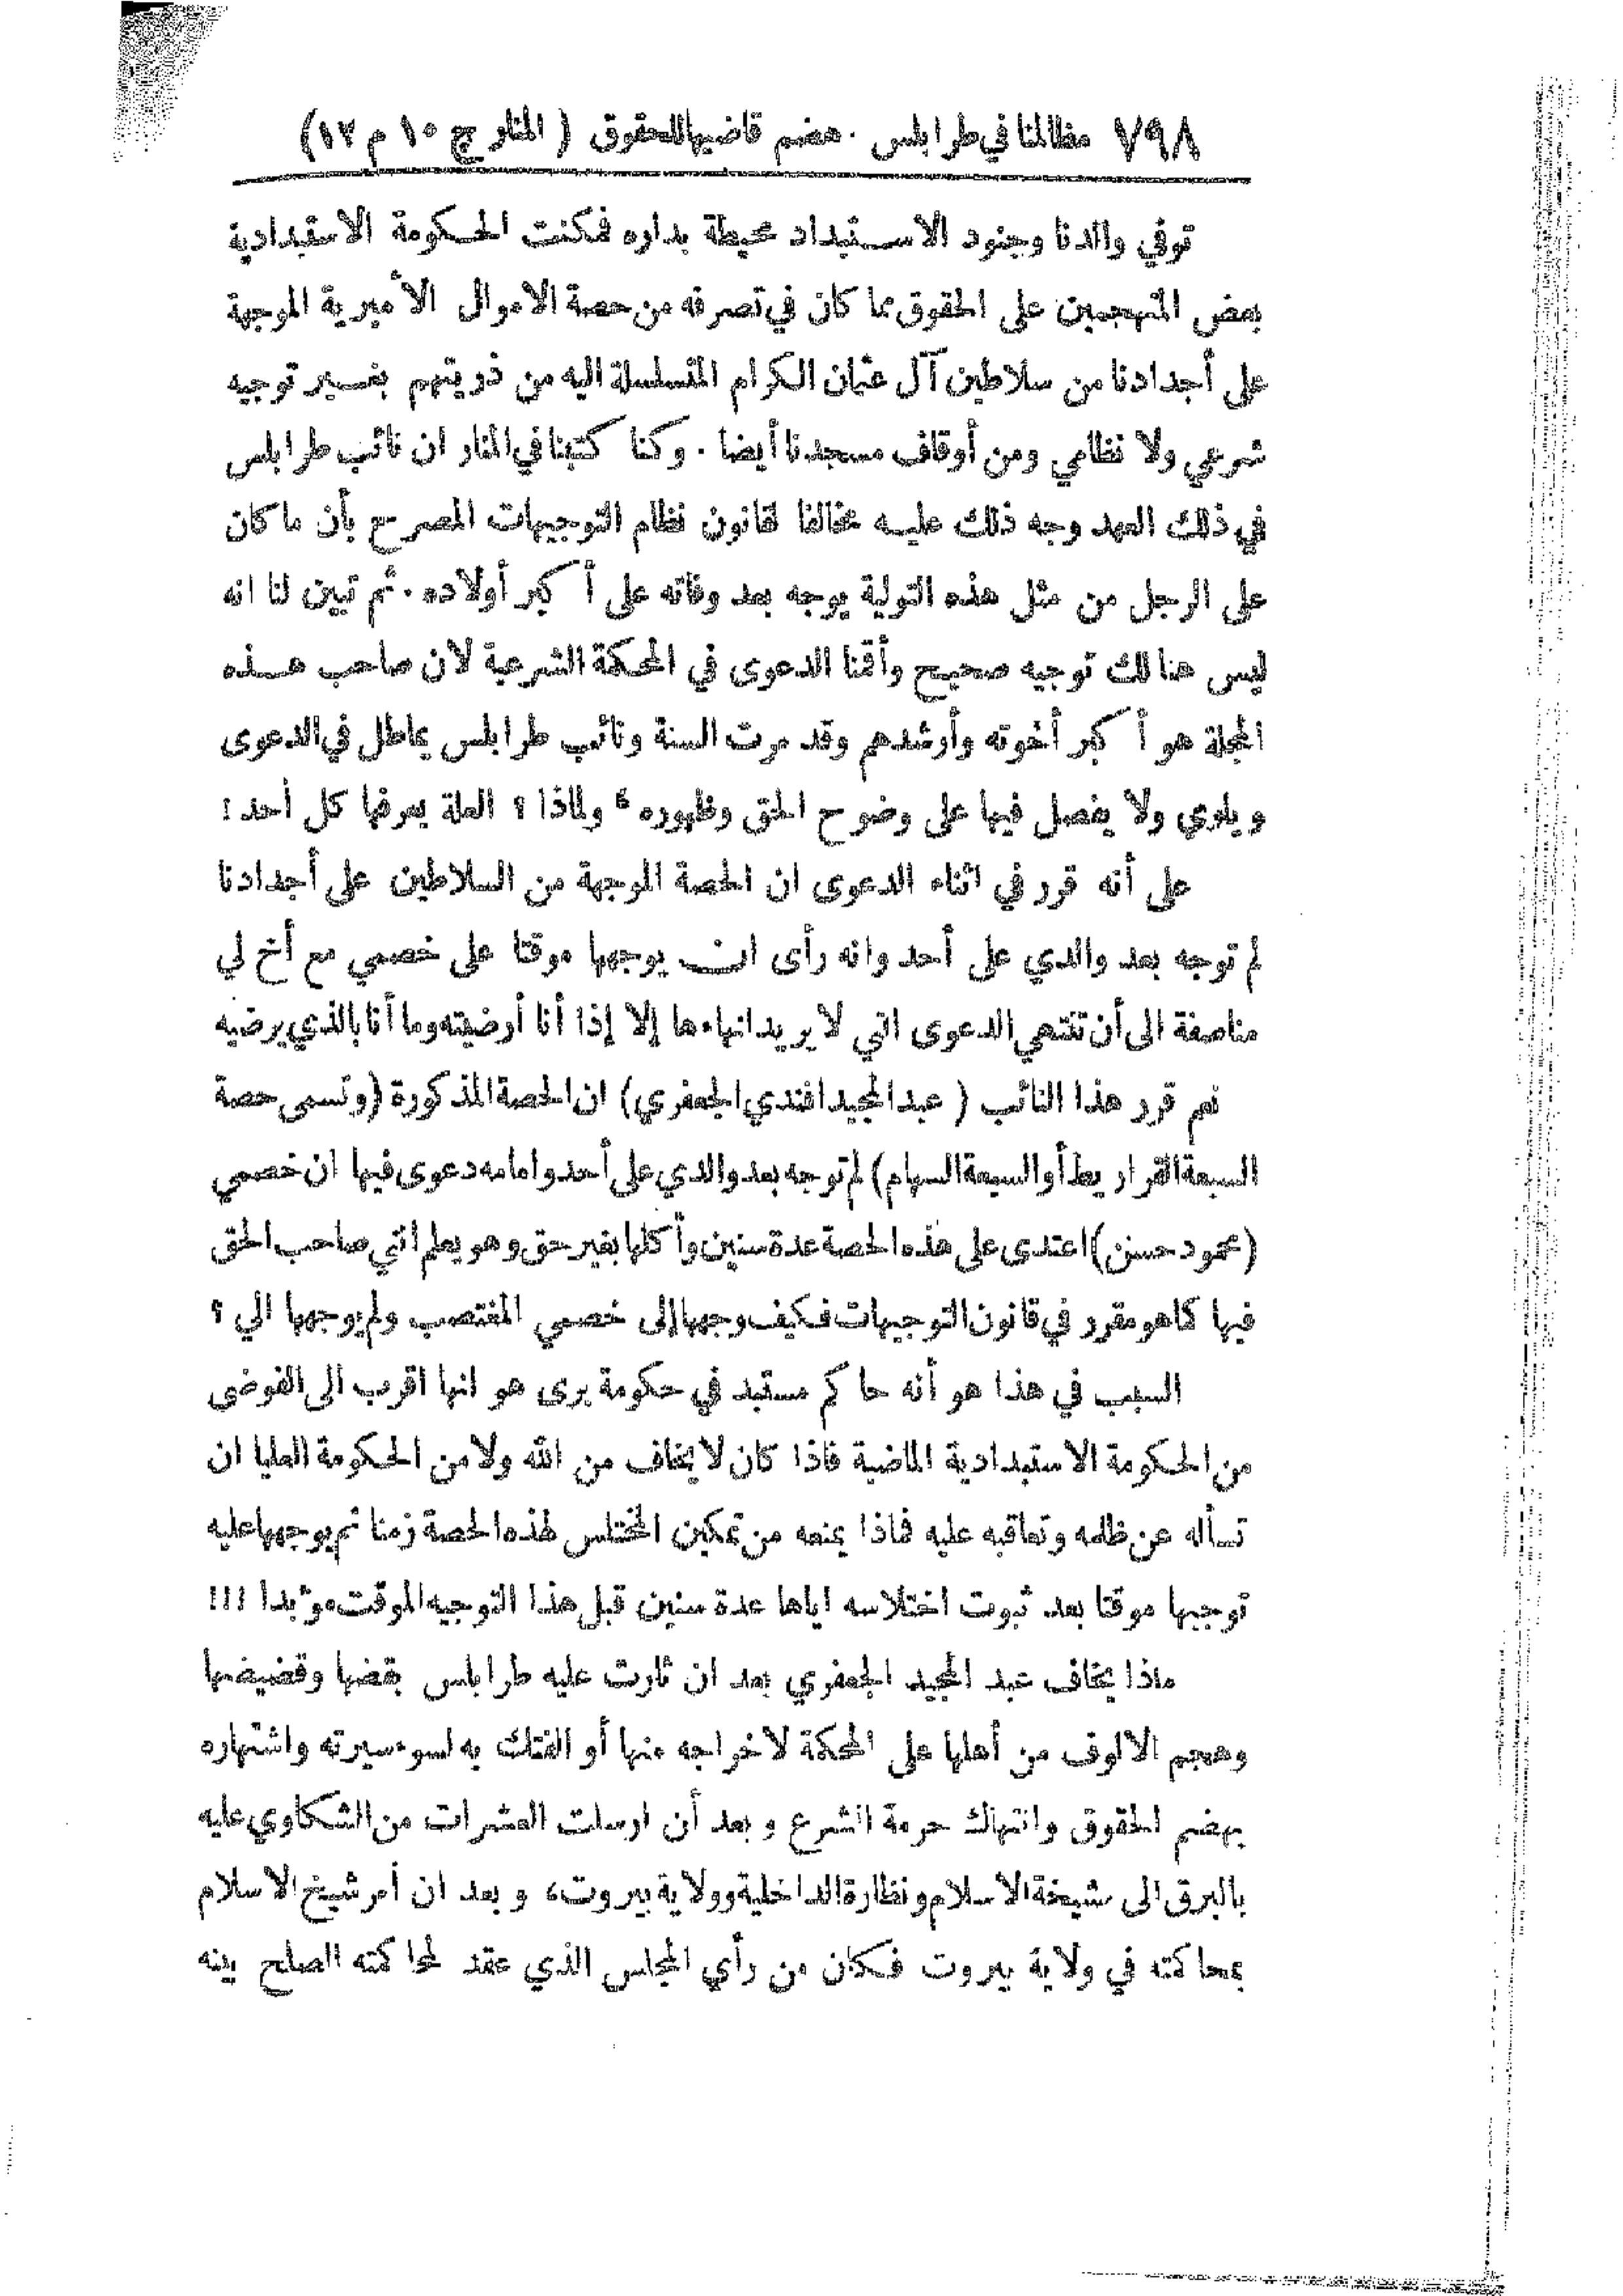 ٧٩٨ مظالمنا في طرابلس . هضم قاضيها للحقوق ( المنار ج ١٠ م ١٢)
توفي والدنا وجنود الاستبداد محيطة بداره فمكنت الحكومة الاستبدادية
بعض المتهجمين على الحقوق مما كان في تصرفه من حصة الاموال الأميرية الموجهة
على أجدادنا من سلاطين آل عثمان الكرام المتسلسلة اليه من ذريتهم بغير توجيه
شرعي ولا نظامي ومن أوقاف مسجدنا أيضا . وكنا كتبنا في المنار ان نائب طرابلس
في ذلك العهد وجه ذلك عليه مخالفا لقانون نظام التوجيهات المصرح بأن ما كان
على الرجل من مثل هذه التولية يوجه بعد وفاته على أكبر أولاده . ثم تبين لنا انه
ليس هنالك توجيه صحيح وأقمنا الدعوى في المحكمة الشرعية لان صاحب هذه
المجلة هو أكبر أخوته وأرشدهم وقد مرت السنة ونائب طرابلس يماطل في الدعوى
ويلوي ولا يفصل فيها على وضوح الحق وظهوره ، ولماذا ؟ العلة يعرفها كل أحد !
على أنه قرر في اثناء الدعوى ان الحصة الموجهة من السلاطين على أجدادنا
لم توجه بعد والدي على أحد وانه رأى ان يوجهها موقتا على خصمي مع أخ لي
مناصفة الى أن تنتهي الدعوى التي لا يريد انهاءها إلا إذا أنا أرضيته وما أنا بالذي يرضيه
ثم قرر هذا النائب ( عبد المجيد افندي الجعفري ) ان الحصة المذكورة ( وتسمى حصة
السبعة القراريط أو السبعة السهام ) لم توجه بعد والدي على أحد وامامه دعوى فيها ان خصمي
( محمود حسن ) اعتدى على هذه الحصة عدة سنين وأكلها بغير حق وهو يعلم انني صاحب الحق
فيها كما هو مقرر في قانون التوجيهات فكيف وجهها إلى خصمي المغتصب ولم يوجهها الي ؟
السبب في هذا هو أنه حاكم مستبد في حكومة يرى هو انها اقرب الى الفوضى
من الحكومة الاستبدادية الماضية فاذا كان لا يخاف من الله ولا من الحكومة العليا ان
تسأله عن ظلمه وتعاقبه عليه فماذا يمنعه من تمكين المختلس لهذه الحصة زمنا ثم يوجهها عليه
توجيها موقتا بعد ثبوت اختلاسه اياها عدة سنين قبل هذا التوجيه الموقت مؤبدا !!!
ماذا يخاف عبد المجيد الجعفري بعد ان ثارت عليه طرابلس بقضها وقضيضها
وهجم الالوف من أهلها على المحكمة لاخراجه منها أو الفتك به لسوء سيرته واشتهاره
بهضم الحقوق وانتهاك حرمة الشرع وبعد أن ارسلت العشرات من الشكاوي عليه
بالبرق الى مشيخة الاسلام ونظارة الداخلية وولاية بيروت ، وبعد ان أمر شيخ الاسلام
بمحاكمته في ولاية بيروت فكان من رأي المجلس الذي عقد لمحاكمته الصلح بينه